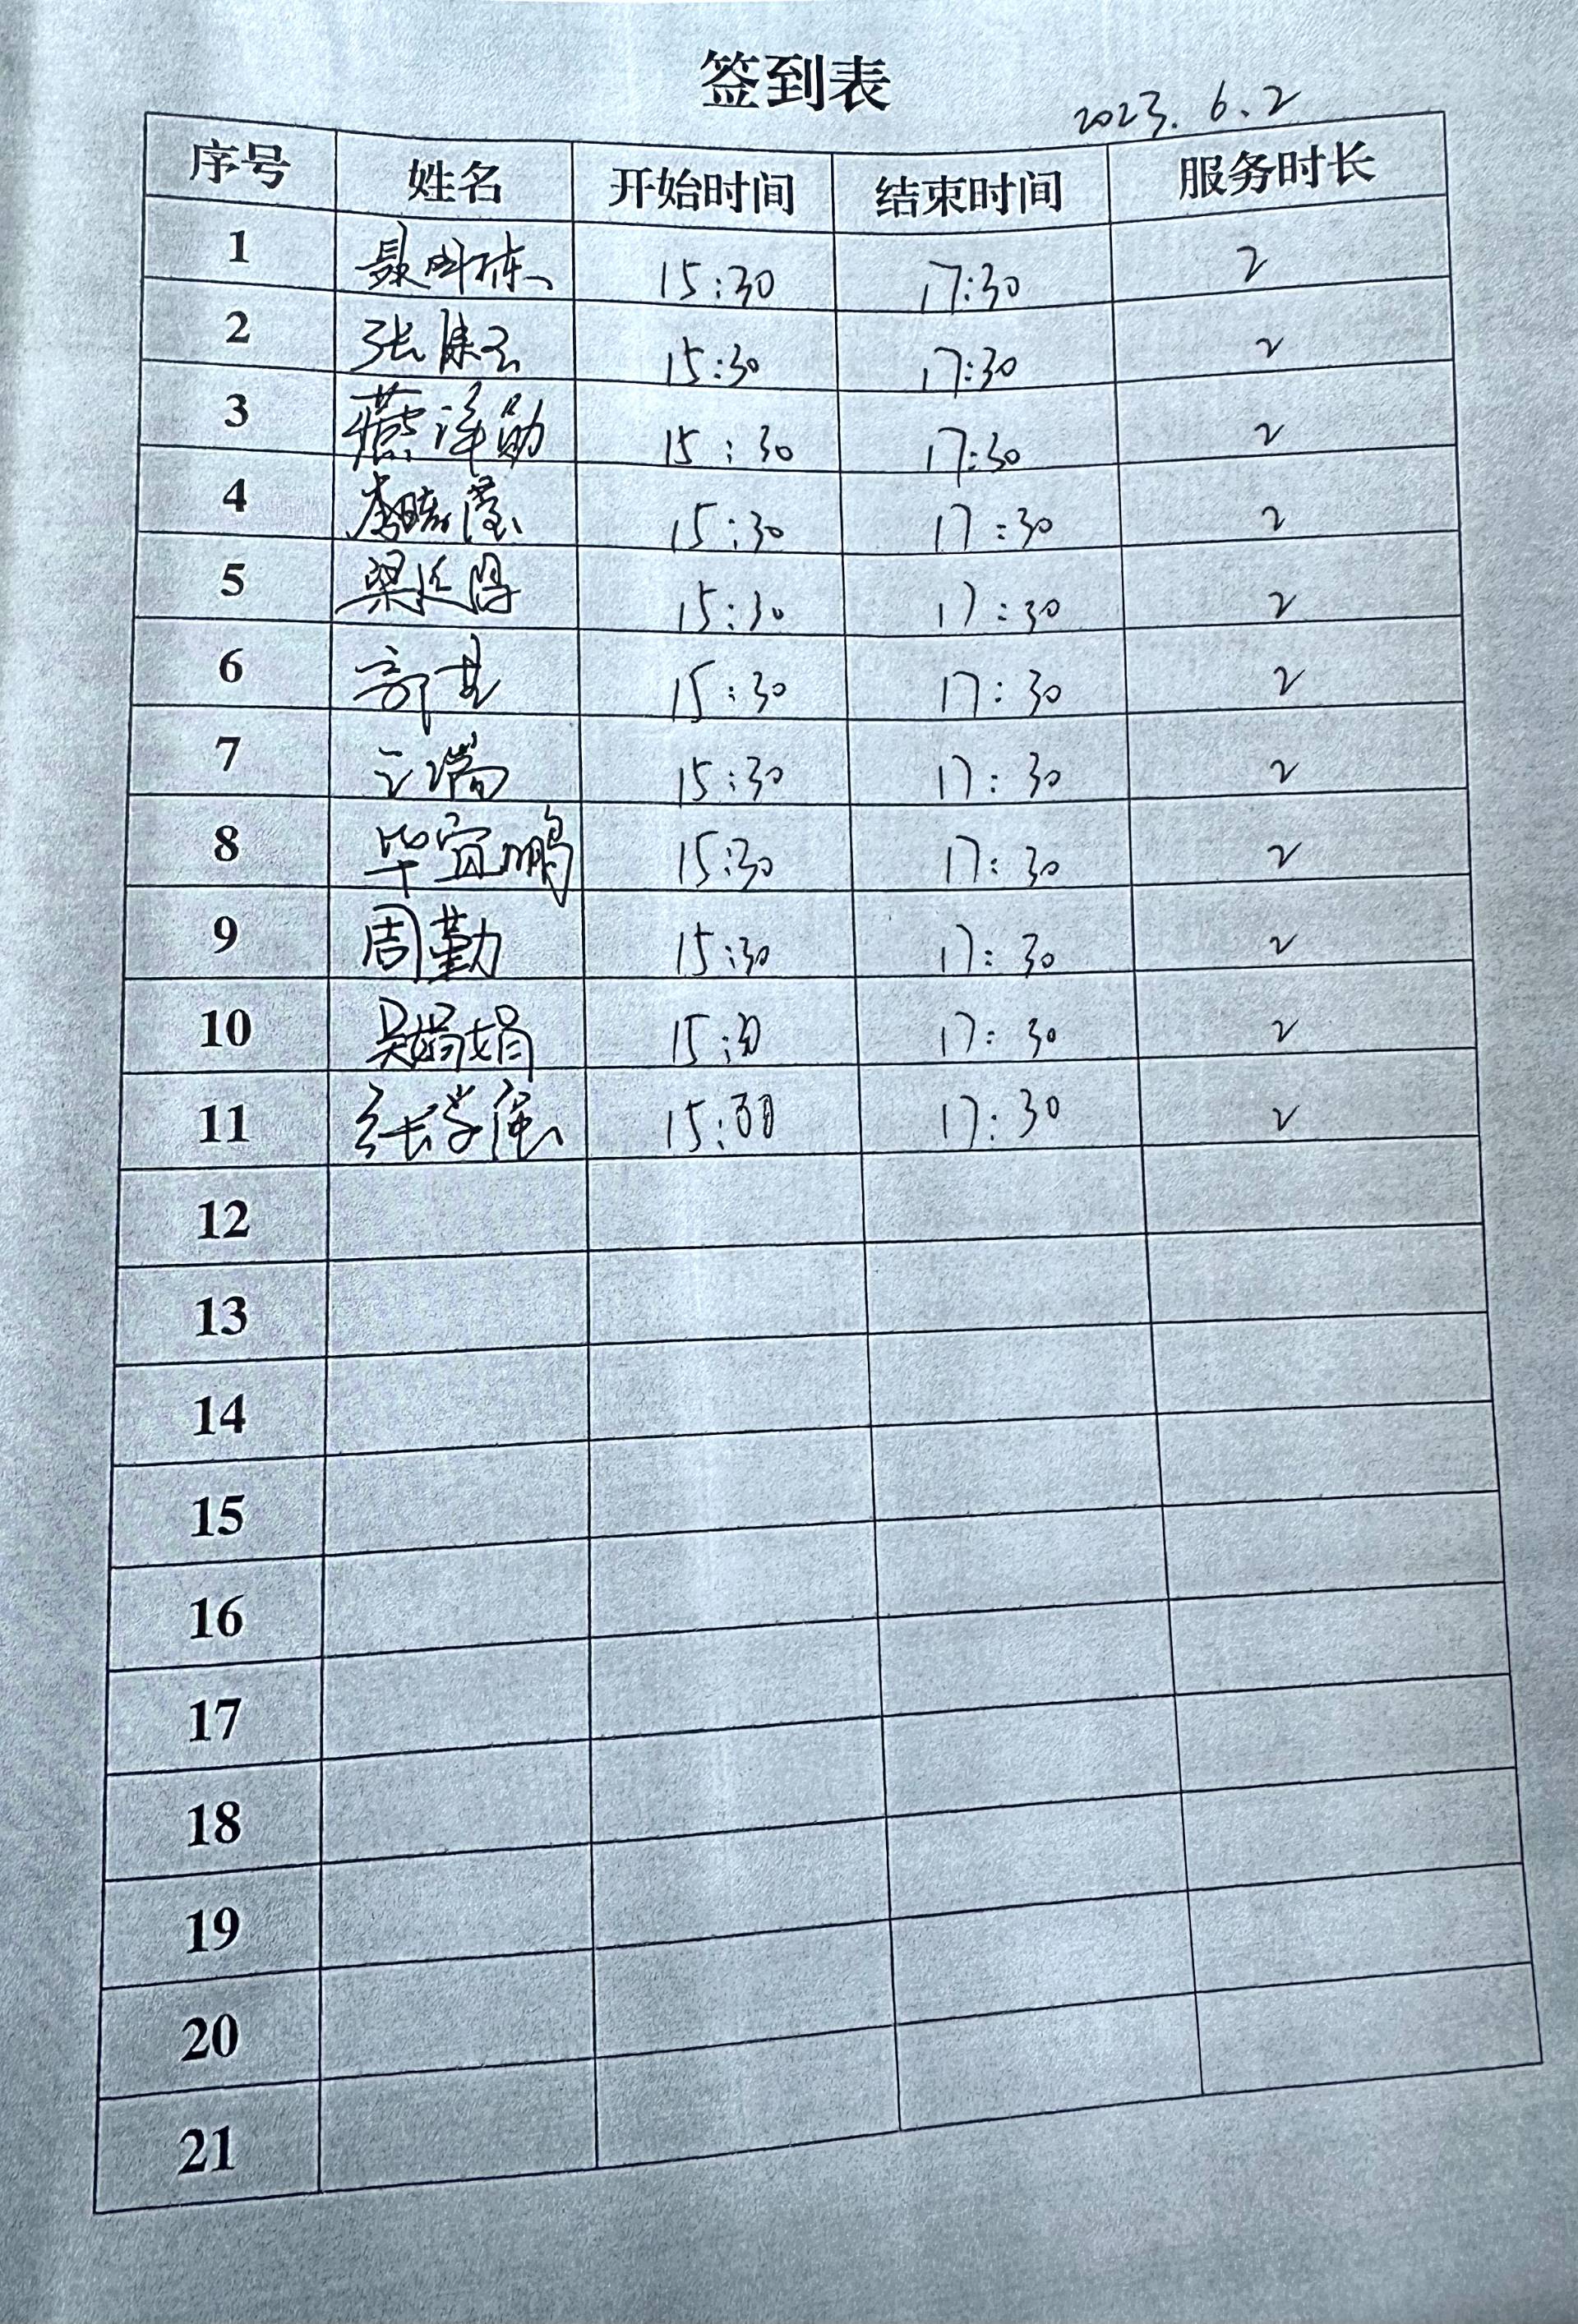 签到表
2023.6.2
序号 姓名 开始时间 结束时间 服务时长
1 聂 15:30 17:30 2
2 张 15:30 17:30 2
3 15:30 17:30 2
4 李 15:30 17:30 2
5 梁 15:30 17:30 2
6 15:30 17:30 2
7 15:30 17:30 2
8 毕宜鹏 15:30 17:30 2
9 周勤 15:30 17:30 2
10 吴娟娟 15:30 17:30 2
11 张学 15:30 17:30 2
12
13
14
15
16
17
18
19
20
21